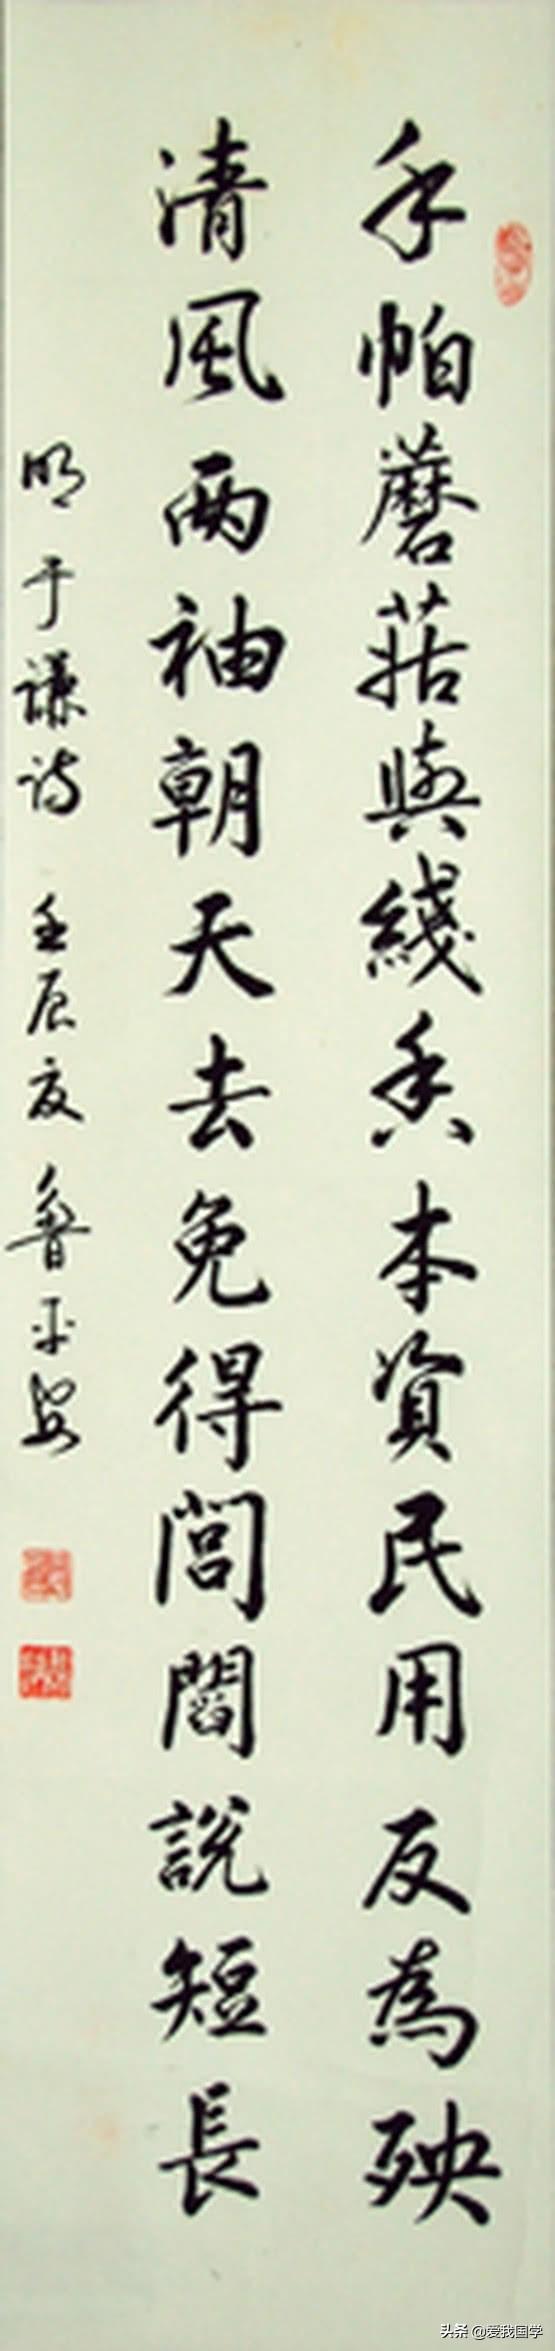 手帕蘑菇與綫香本資民用反為殃
清風两袖朝天去免得閭閻說短長
明于谦诗 壬辰夏 魯平安
头条 @爱我国学